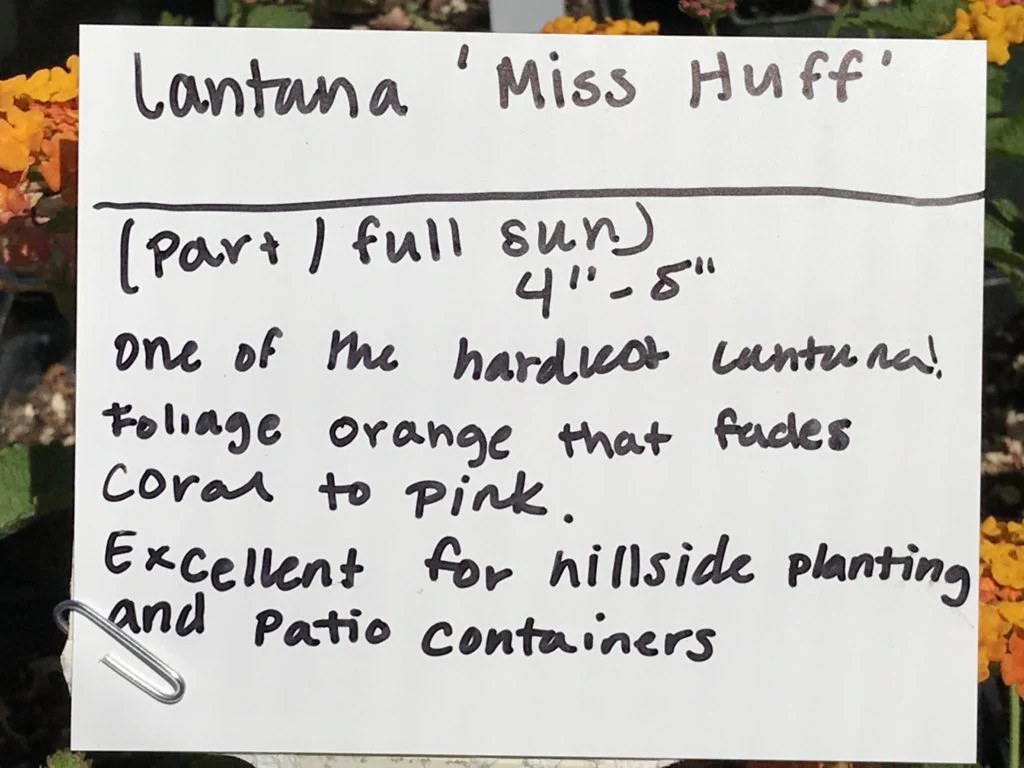 Lantana 'Miss Huff'
(Part / full sun)
4"-5"
One of the hardiest lantana!
Foliage orange that fades
coral to pink.
Excellent for hillside planting
and Patio containers